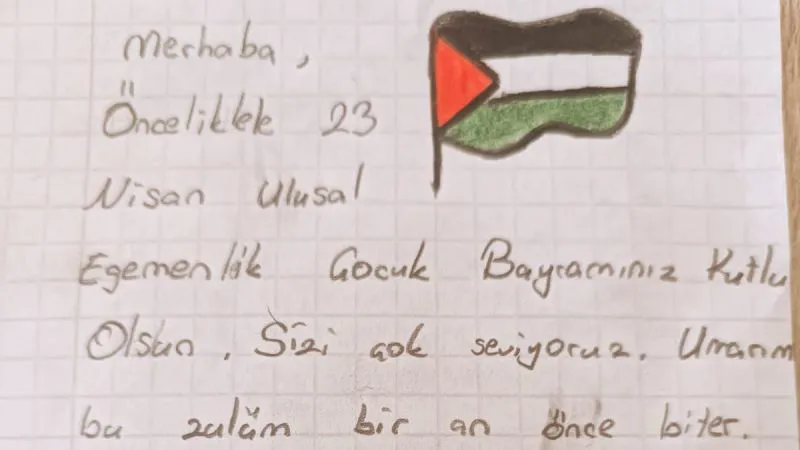 Merhaba,
Önceliklek 23
Nisan Ulusal
Egemenlik Çocuk Bayramınız Kutlu
Olsun. Sizi çok seviyoruz. Umarım
bu zulüm bir an önce biter.